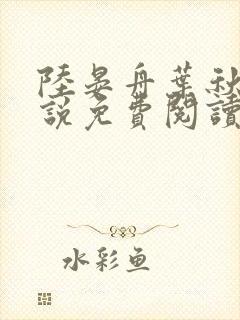 陸晏舟葉秋
說免費閱讀
水彩魚